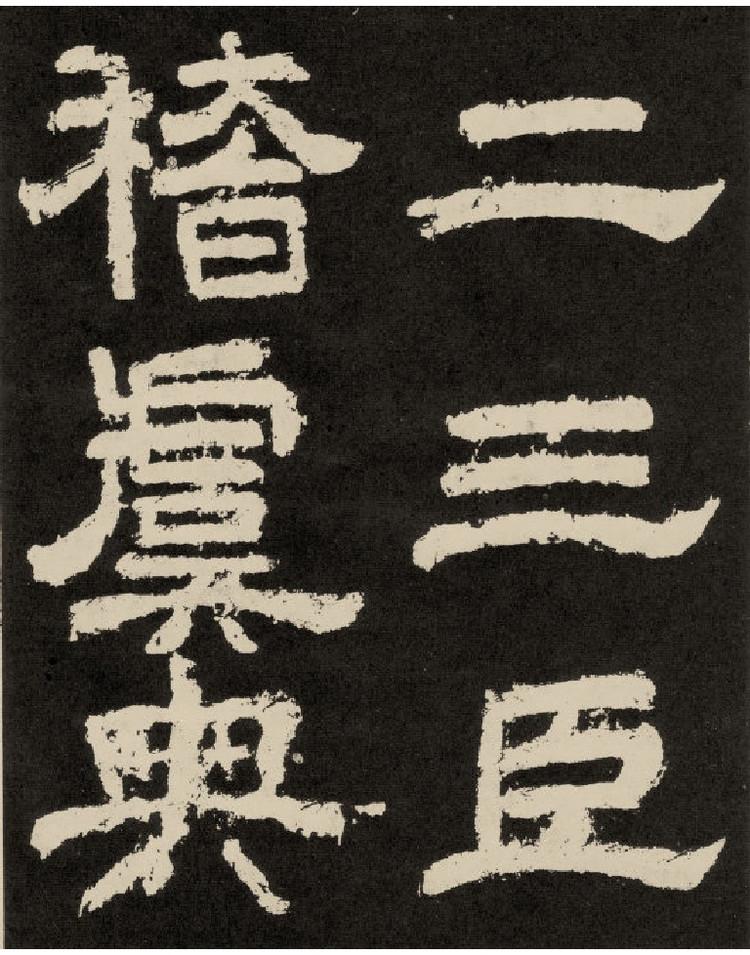 二三臣
稽虞典